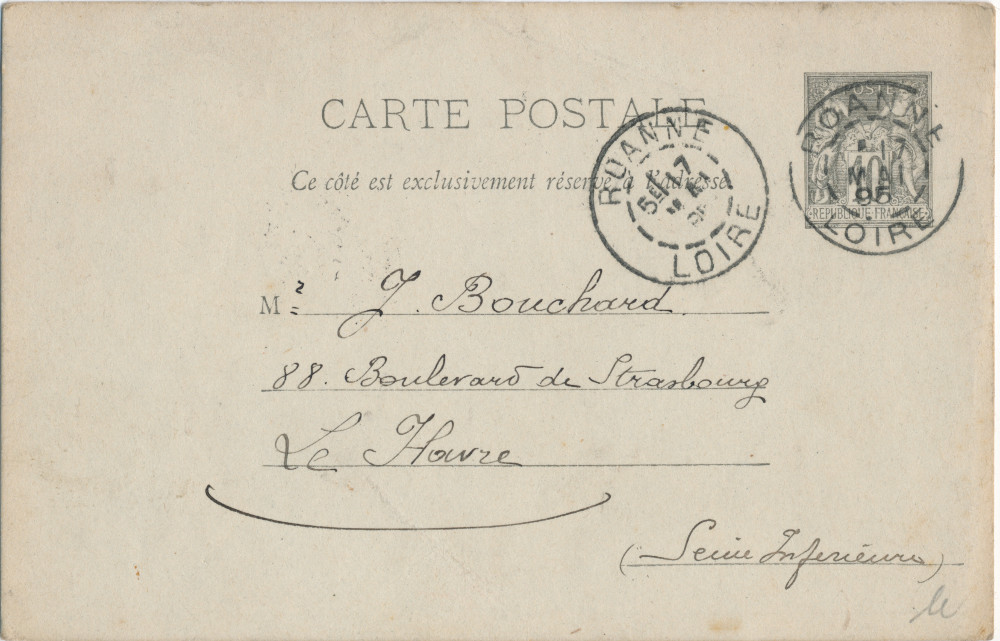 CARTE POSTALE
Ce côté est exclusivement réservé à l'adresse
ROANNE
LOIRE
POSTE
10
REPUBLIQUE FRANÇAISE
ROANNE
17
MAI
95
LOIRE
Mr J. Bouchard
88. Boulevard de Strasbourg
Le Havre
(Seine Inferieure)